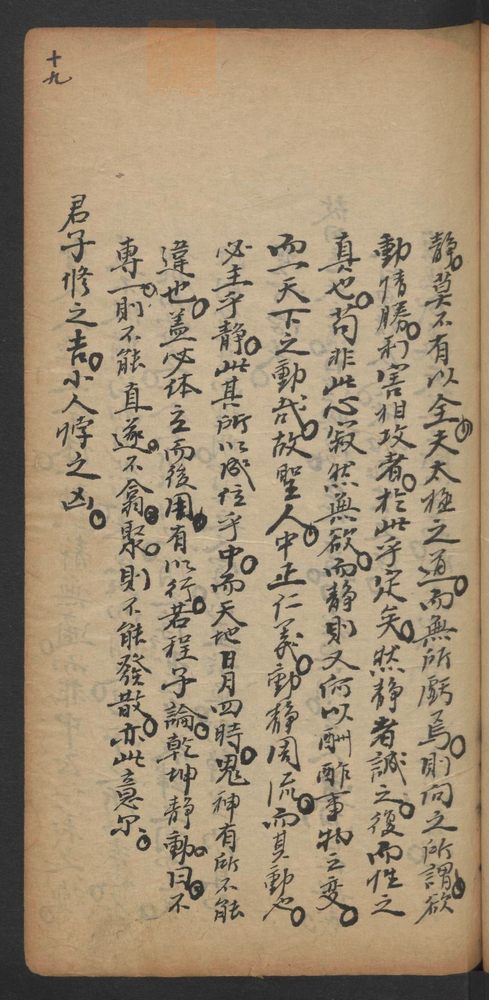 十九
靜莫不有以全夫太極之道而無所虧焉則向之所謂欲
動情勝利害相攻者於此乎定矣然靜者誠之復而性之
真也苟非此心寂然無欲而靜則又何以酬酢事物之變
而一天下之動哉故聖人中正仁義動靜周流而其動也
必主乎靜此其所以成位乎中而天地日月四時鬼神有所不能
違也蓋必体立而後用有以行若程子論乾坤靜動曰不
專一則不能直遂不翕聚則不能發散亦此意尔
君子修之吉小人悖之凶